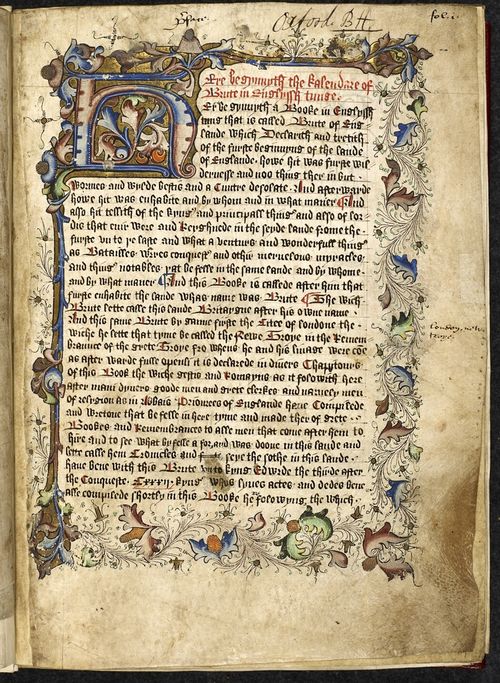 Oxford B H
fol. 1.
Ere begynnyth the Kalendare of
Brute in Englyssh tunge.
Ere begynnyth a Booke in Englyssh
tung that is called Brute of Eng
lande which Declarith and tretith
of the furste begynnyng of the lande
of Englande. howe hit was furste wil
dernesse and noo thing ther in but
Wormes and wylde bestis and a Cuntre desolate. And afterwarde
howe hit was enhabite and by whom and in what maner And
also hit tellith of the kyng and principall thing and also of lor
dis that euir were and Reyghned in the seyde lande frome the
furste vn to ye laste and what a venturis and wonderfull thing
as Batailles Wires conquest and othir mervelous myracles
and thing notables yat be felle in the same lande and by whome
and by what maner And this Booke is callede after him that
furste enhabite the lande Whas name was Brute The wich
Brute lette calle this lande Britaigne after his owne name
And this same Brute by ganne furste the Citee of londone the
wiche he lett that tyme be called the Newe Troye in the Remem
braunce of the grete Troye fro whens he and his linage were come
as after warde fulle openly it is declarede in diuers Chapters
of this Book the wiche gestis and Romayns as it folowith here
after mani diuers goode men and grete clerkes and namely men
of religion as in Abbais Priourees of Englande haue Compilede
and Wretone that be felle in here tyme and made ther of grete
Bookes and Remembrances to alle men that come after hem to
hire and to see what by felle a for and was doone in this lande and
lete calle hem Cronicles and seye the sothe in this lande
haue bene with this Brute vn to kyng Edwarde the thirde after
the Conqueste. Cxxxij kyng whos lyues actes and dedes bene
alle compilede shortly in this Booke he folowyng the which